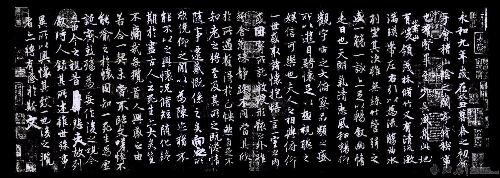 永和九年歲在癸丑暮春之初
會于會稽山陰之蘭亭脩稧事
也群賢畢至少長咸集此地
有崇山峻領茂林脩竹又有清流激
湍暎帶左右引以為流觴曲水
列坐其次雖無絲竹管弦之
盛一觴一詠亦足以暢敘幽情
是日也天朗氣清惠風和暢仰
觀宇宙之大俯察品類之盛
所以遊目騁懷足以極視聽之
娛信可樂也夫人之相與俯仰
一世或取諸懷抱悟言一室之內
或因寄所託放浪形骸之外雖
趣舍萬殊靜躁不同當其欣
於所遇蹔得於己怏然自足不
知老之將至及其所之既惓情
隨事遷感慨係之矣向之所
欣俛仰之閒以為陳迹猶不
能不以之興懷況脩短隨化終
期於盡古人云死生亦大矣豈
不痛哉每攬昔人興感之由
若合一契未嘗不臨文嗟悼不
能喻之於懷固知一死生為虛
誕齊彭殤為妄作後之視今
亦由今之視昔悲夫故列
敘時人錄其所述雖世殊事
異所以興懷其致一也後之攬
者亦將有感於斯文